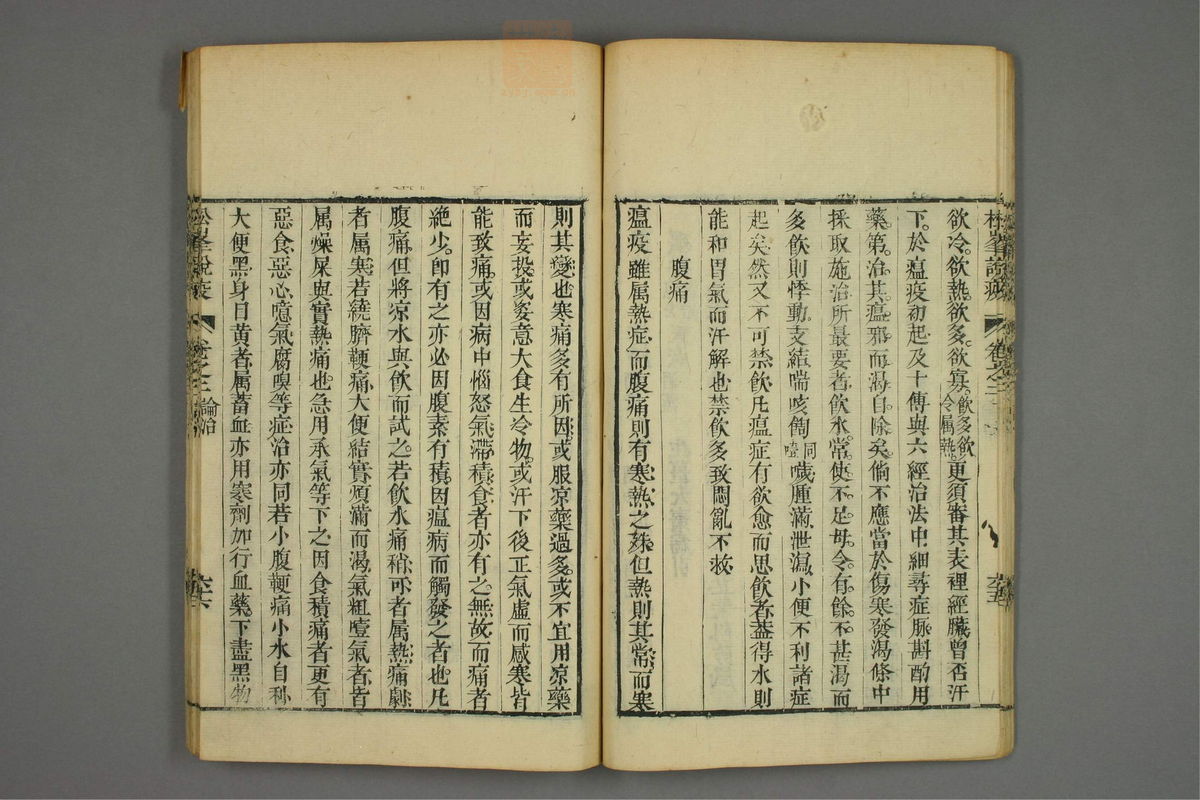 松峯說疫 卷之三 六五
欲冷欲熱欲多欲寡飲多欲冷属熱更須審其表裡經臟曾否汗
下於瘟疫初起及十傳與六經治法中細尋症脉斟酌用
藥第治其瘟邪而渴自除矣倘不應當於傷寒發渴條中
採取施治所最要者飲水常使不足毋令有餘不甚渴而
多飲則悸動支結喘咳𩚬同噎噦腫滿泄瀉小便不利諸症
起矣然又不可禁飲凡瘟症有飲愈而思飲者葢得水則
能和胃氣而汗解也禁飲多致悶亂不救
腹痛
瘟疫雖属熱症而腹痛則有寒熱之殊但熱則其常而寒
則其變也寒痛多有所因或服凉藥過多或不宜用凉藥
而妄投或姿意大食生冷物或汗下後正氣虛而感寒皆
能致痛或因病中惱怒氣滯積食者亦有之無故而痛者
絶少卽有之亦必因腹素有積因瘟病而觸發之者也凡
腹痛但將凉水與飲而試之若飲水痛稍可者属熱痛劇
者属寒若繞臍鞕痛大便結實煩滿而渴氣粗噎氣者皆
属燥屎與實熱痛也急用承氣等下之因食積痛者更有
惡食惡心噫氣腐嗅等症治亦同若小腹鞕痛小水自利
大便黑身目黄者属蓄血亦用寒劑加行血藥下盡黑物
松峯說疫 卷之三 論治 六六